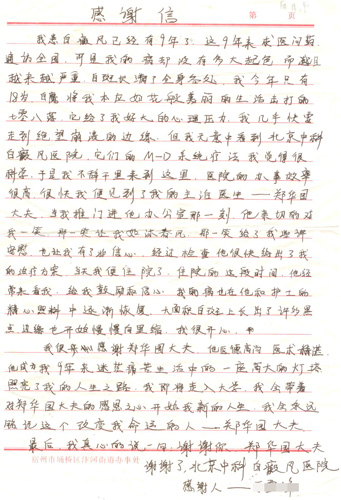 感谢信
第 页
我患白癜风已经有9年了。这9年来求医问药
遍访全国,可是我的病却没有多大起色,而且
越来越严重,白斑长满了全身各处,我今年只有
19岁,白癜将我本应如花般美丽的生活击打的
七零八落,它给了我好大的心理压力,我几乎快要
走到绝望崩溃的边缘,但我无意中看到北京中科
白癜风医院,它们的M-D系统疗法我觉得很
科学,于是我不辞千里来到这里。医院的办事效率
很高,很快我便见到了我的主治医生——郑华国
大夫,当我推门进他办公室那一刻,他亲切的对
我一笑,那一笑让我如沐春风,那一笑给了我些许
安慰,也让我有了必信心,经过检查他很快给出了我
的治疗方案,当天我便住院了,住院的这段时间,他经
常来看我,给我鼓励和信心,我的病也在他和护士的
精心照料中逐渐恢复,大面积白斑上长出了许多黑
点,边缘也开始慢慢向里缩,我很开心。
我很衷心感谢郑华国大夫,他医德高尚,医术精湛,
他成为我9年来迷茫痛苦生活中的一座高大的灯塔
照亮了我的人生之路,我即将走入大学,我会带着
对郑华国大夫的感恩之心开始我新的人生,我会永远
铭记这个改变我命运的人——郑华国大夫
最后,我真心的说一句:谢谢你,郑华国大夫
谢谢了,北京中科白癜风医院
宿州市埇桥区汴河街道办事处
感谢人——